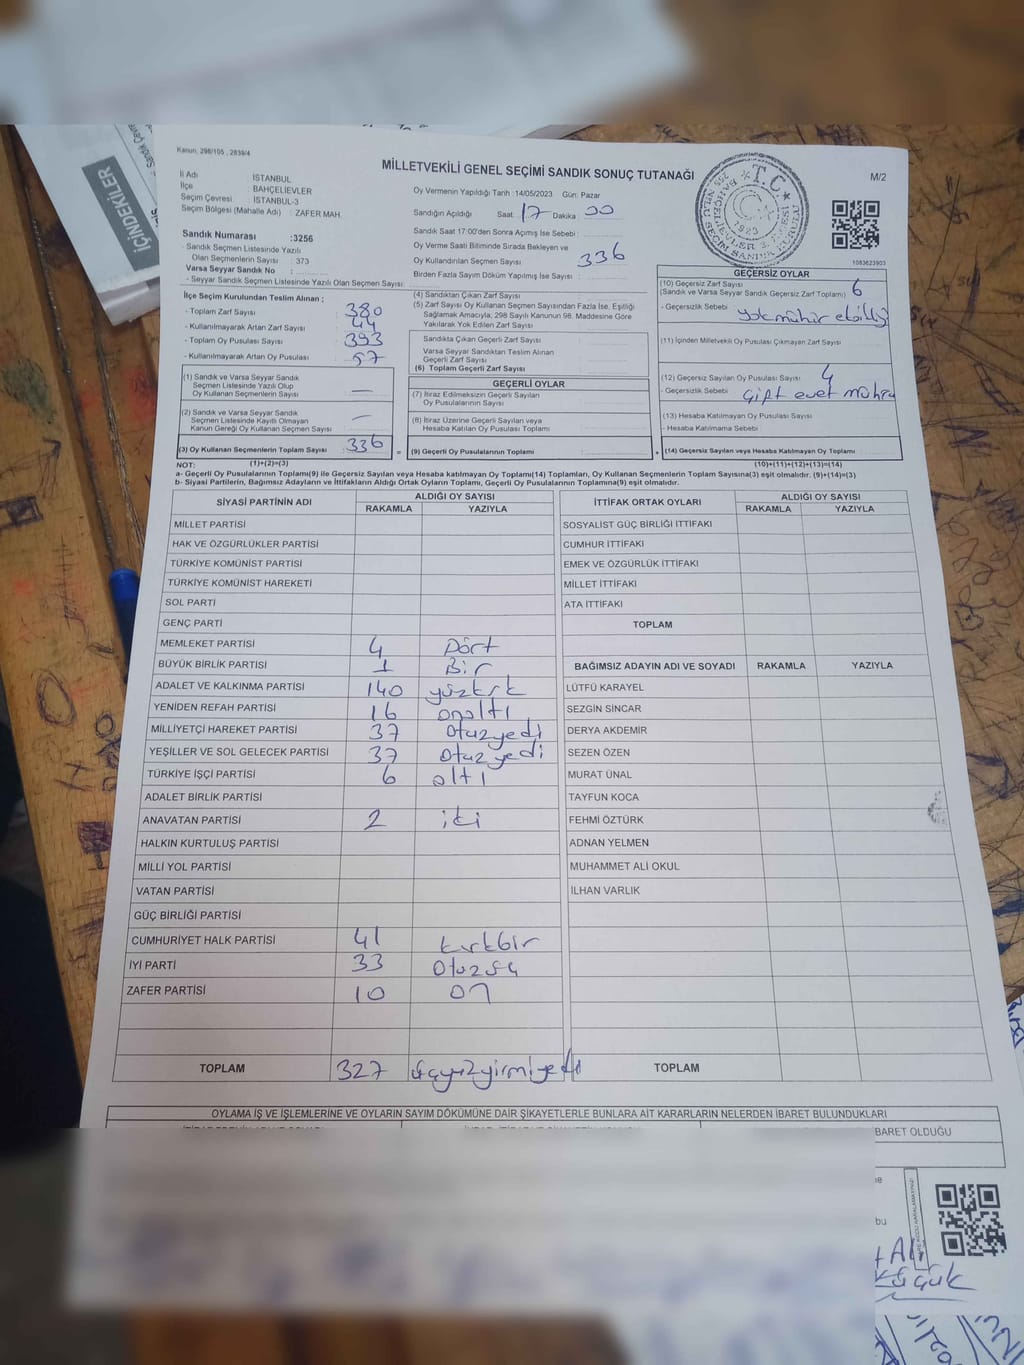 İÇİNDEKİLER
Kanun: 298/105 , 2839/4
MİLLETVEKİLİ GENEL SEÇİMİ SANDIK SONUÇ TUTANAĞI
M/2
İl Adı : İSTANBUL
İlçe : BAHÇELİEVLER
Seçim Çevresi : İSTANBUL-3
Seçim Bölgesi (Mahalle Adı) : ZAFER MAH.
Sandık Numarası :3256
- Sandık Seçmen Listesinde Yazılı
Olan Seçmenlerin Sayısı : 373
Varsa Seyyar Sandık No :
- Seyyar Sandık Seçmen Listesinde Yazılı Olan Seçmen Sayısı:
Oy Vermenin Yapıldığı Tarih :14/05/2023 Gün: Pazar
Sandığın Açıldığı Saat: 17 Dakika 00
Sandık Saat 17:00'den Sonra Açılmış İse Sebebi :
Oy Verme Saati Bitiminde Sırada Bekleyen ve
Oy Kullandırılan Seçmen Sayısı : 336
Birden Fazla Sayım Döküm Yapılmış İse Sayısı :
T.C.
1923
1083623903
İlçe Seçim Kurulundan Teslim Alınan ;
- Toplam Zarf Sayısı : 380
- Kullanılmayarak Artan Zarf Sayısı : 44
- Toplam Oy Pusulası Sayısı : 393
- Kullanılmayarak Artan Oy Pusulası : 57
(1) Sandık ve Varsa Seyyar Sandık
Seçmen Listesinde Yazılı Olup
Oy Kullanan Seçmenlerin Sayısı : —
(2) Sandık ve Varsa Seyyar Sandık
Seçmen Listesinde Kayıtlı Olmayan
Kanun Gereği Oy Kullanan Seçmenlerin Sayısı : —
(3) Oy Kullanan Seçmenlerin Toplam Sayısı : 336
(1)+(2)=(3)
(4) Sandıktan Çıkan Zarf Sayısı :
(5) Zarf Sayısı Oy Kullanan Seçmen Sayısından Fazla İse, Eşitliği
Sağlamak Amacıyla, 298 Sayılı Kanunun 98. Maddesine Göre
Yakılarak Yok Edilen Zarf Sayısı
Sandıkta Çıkan Geçerli Zarf Sayısı :
Varsa Seyyar Sandıktan Teslim Alınan
Geçerli Zarf Sayısı :
(6) Toplam Geçerli Zarf Sayısı :
GEÇERLİ OYLAR
(7) İtiraz Edilmeksizin Geçerli Sayılan
Oy Pusulalarının Sayısı :
(8) İtiraz Üzerine Geçerli Sayılan veya
Hesaba Katılan Oy Pusulası Toplamı :
= (9) Geçerli Oy Pusulalarının Toplamı :
GEÇERSİZ OYLAR
(10) Geçersiz Zarf Sayısı : 6
(Sandık ve Varsa Seyyar Sandık Geçersiz Zarf Toplamı)
- Geçersizlik Sebebi :
(11) İçinden Milletvekili Oy Pusulası Çıkmayan Zarf Sayısı :
(12) Geçersiz Sayılan Oy Pusulası Sayısı : 4
- Geçersizlik Sebebi : Çift evet mührü
(13) Hesaba Katılmayan Oy Pusulası Sayısı :
- Hesaba Katılmama Sebebi :
+ (14) Geçersiz Sayılan veya Hesaba Katılmayan Oy Toplamı :
(10)+(11)+(12)+(13)=(14)
NOT:
a- Geçerli Oy Pusulalarının Toplamı(9) ile Geçersiz Sayılan veya Hesaba katılmayan Oy Toplamı(14) Toplamları, Oy Kullanan Seçmenlerin Toplam Sayısına(3) eşit olmalıdır. (9)+(14)=(3)
b- Siyasi Partilerin, Bağımsız Adayların ve İttifakların Aldığı Ortak Oyların Toplamı, Geçerli Oy Pusulalarının Toplamına(9) eşit olmalıdır.
SİYASİ PARTİNİN ADI ALDIĞI OY SAYISI
RAKAMLA YAZIYLA
MİLLET PARTİSİ
HAK VE ÖZGÜRLÜKLER PARTİSİ
TÜRKİYE KOMÜNİST PARTİSİ
TÜRKİYE KOMÜNİST HAREKETİ
SOL PARTİ
GENÇ PARTİ
MEMLEKET PARTİSİ 4 Dört
BÜYÜK BİRLİK PARTİSİ 1 Bir
ADALET VE KALKINMA PARTİSİ 140 yüzkırk
YENİDEN REFAH PARTİSİ 16 onaltı
MİLLİYETÇİ HAREKET PARTİSİ 37 otuzyedi
YEŞİLLER VE SOL GELECEK PARTİSİ 37 otuzyedi
TÜRKİYE İŞÇİ PARTİSİ 6 altı
ADALET BİRLİK PARTİSİ
ANAVATAN PARTİSİ 2 iki
HALKIN KURTULUŞ PARTİSİ
MİLLİ YOL PARTİSİ
VATAN PARTİSİ
GÜÇ BİRLİĞİ PARTİSİ
CUMHURİYET HALK PARTİSİ 41 kırkbir
İYİ PARTİ 33 otuzüç
ZAFER PARTİSİ 10 on
TOPLAM 327 üçyüzyirmiyedi
İTTİFAK ORTAK OYLARI ALDIĞI OY SAYISI
RAKAMLA YAZIYLA
SOSYALİST GÜÇ BİRLİĞİ İTTİFAKI
CUMHUR İTTİFAKI
EMEK VE ÖZGÜRLÜK İTTİFAKI
MİLLET İTTİFAKI
ATA İTTİFAKI
TOPLAM
BAĞIMSIZ ADAYIN ADI VE SOYADI RAKAMLA YAZIYLA
LÜTFÜ KARAYEL
SEZGİN SİNCAR
DERYA AKDEMİR
SEZEN ÖZEN
MURAT ÜNAL
TAYFUN KOCA
FEHMİ ÖZTÜRK
ADNAN YELMEN
MUHAMMET ALİ OKUL
İLHAN VARLIK
TOPLAM
OYLAMA İŞ VE İŞLEMLERİNE VE OYLARIN SAYIM DÖKÜMÜNE DAİR ŞİKAYETLERLE BUNLARA AİT KARARLARIN NELERDEN İBARET BULUNDUKLARI
BARET OLDUĞU
bu
küçük